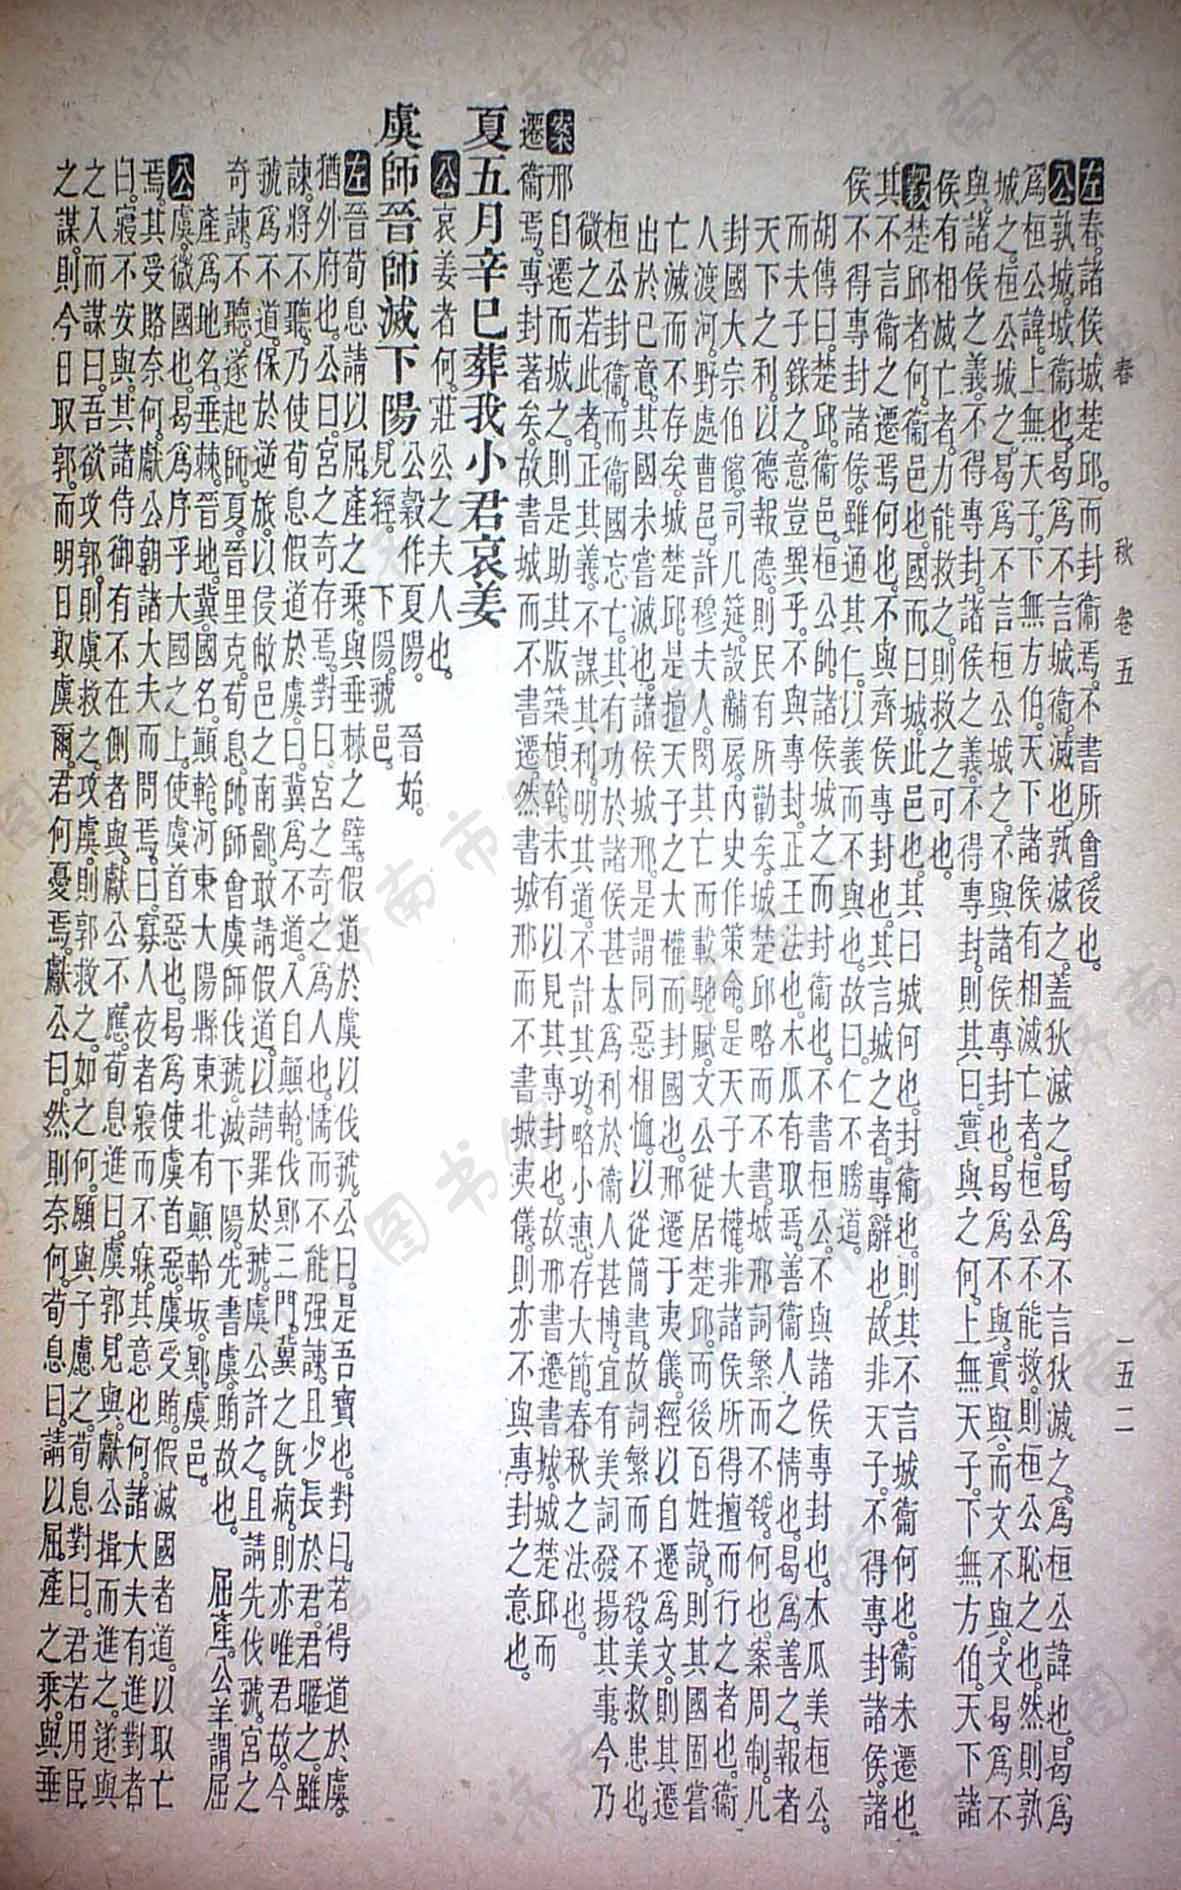 春秋卷五 一五二
左春。諸侯城楚邱。而封衞焉。不書所會。後也。
公孰城。城衞也。曷爲不言城衞。滅也。孰滅之。蓋狄滅之。曷爲不言狄滅之。爲桓公諱也。曷爲
爲桓公諱。上無天子。下無方伯。天下諸侯有相滅亡者。桓公不能救。則桓公恥之也。然則孰
城之。桓公城之。曷爲不言桓公城之。不與諸侯專封也。曷爲不與。實與。而文不與。文曷爲不
與。諸侯之義。不得專封。諸侯之義。不得專封。則其曰實與之何。上無天子。下無方伯。天下諸
侯有相滅亡者。力能救之。則救之可也。
穀楚邱者何。衞邑也。國而曰城。此邑也。其曰城何也。封衞也。則其不言城衞何也。衞未遷也。
其不言衞之遷焉何也。不與齊侯專封也。其言城之者。專辭也。故非天子。不得專封諸侯。諸
侯不得專封諸侯。雖通其仁。以義而不與也。故曰。仁不勝道。
胡傳曰。楚邱。衞邑。桓公帥諸侯城之而封衞也。不書桓公。不與諸侯專封也。木瓜美桓公。
而夫子錄之。意豈異乎。不與專封。正王法也。木瓜有取焉。善衞人之情也。曷爲善之。報者
天下之利。以德報德。則民有所勸矣。城楚邱略而不書。城邢詞繁而不殺。何也。案周制。凡
封國。大宗伯儐。司几筵。設黼扆。內史作策命。是天子大權。非諸侯所得擅而行之者也。衞
人渡河。野處曹邑。許穆夫人。閔其亡而載馳賦。文公徙居楚邱。而後百姓說。則其國固嘗
亡滅而不存矣。城楚邱。是擅天子之大權而封國也。邢遷于夷儀。經以自遷爲文。則其遷
出於已意。其國未嘗滅也。諸侯城邢。是謂同惡相恤。以從簡書。故詞繁而不殺。美救患也。
桓公封衞。而衞國忘亡。其有功於諸侯甚大。爲利於衞人甚博。宜有美詞發揚其事。今乃
微之若此者。正其義。不謀其利。明其道。不計其功。略小惠。存大節。春秋之法也。
案邢自遷而城之。則是助其版築楨幹。未有以見其專封也。故邢書遷書城。城楚邱而
遷衞焉。專封著矣。故書城而不書遷。然書城邢而不書城夷儀。則亦不與專封之意也。
夏五月辛巳葬我小君哀姜
公哀姜者何。莊公之夫人也。
虞師晉師滅下陽公穀作夏陽。晉始見經。下陽。虢邑。
左晉荀息請以屈產之乘。與垂棘之璧。假道於虞以伐虢。公曰。是吾寶也。對曰。若得道於虞。
猶外府也。公曰。宮之奇存焉。對曰。宮之奇之爲人也。懦而不能强諫。且少長於君。君暱之。雖
諫。將不聽。乃使荀息假道於虞。曰。冀爲不道。入自顚軨。伐鄍三門。冀之旣病。則亦唯君故。今
虢爲不道。保於逆旅。以侵敝邑之南鄙。敢請假道。以請罪於虢。虞公許之。且請先伐虢。宮之
奇諫。不聽。遂起師。夏。晉里克。荀息。帥師會虞師伐虢。滅下陽。先書虞。賄故也。屈產。公羊謂屈
產爲地名。垂棘。晉地。冀。國名。顚軨。河東大陽縣東北有顚軨坂。鄍。虞邑。
公虞。微國也。曷爲序乎大國之上。使虞首惡也。曷爲使虞首惡。虞受賂。假滅國者道。以取亡
焉。其受賂奈何。獻公朝諸大夫而問焉。曰。寡人夜者寢而不寐。其意也何。諸大夫有進對者
曰。寢不安與。其諸侍御有不在側者與。獻公不應。荀息進曰。虞郭見與。獻公揖而進之。遂與
之入而謀曰。吾欲攻郭。則虞救之。攻虞。則郭救之。如之何。願與子慮之。荀息對曰。君若用臣
之謀。則今日取郭。而明日取虞爾。君何憂焉。獻公曰。然則奈何。荀息曰。請以屈產之乘。與垂